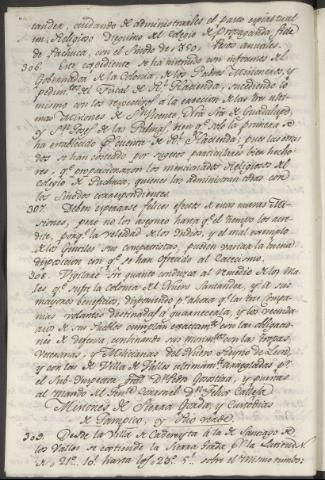 tander, cuidando de administrarles el pasto espiritual
un Religioso Dieguino del Colegio de Propaganda fide
de Pachuca, con el Sinodo de 350, pesos anuales.
306. Este expediente se ha instruido con informes del
Governador de la Colonia, de los Padres Misioneros, y
pedimtos del Fiscal de Rl Hacienda, sucediendo lo
mismo con los respectivos a la ereccion de las tres ultimas
Misiones de Sn Vicente, Ntra Sra de Guadalupe,
y Sn Josef de las Palmas; bien qe solo la primera se
ha establecido pr cuenta de Rl Hacienda; pues las otras
dos se han costeado por sugetos particulares bien hechores,
qe proporcionaron los mencionados Religiosos del
Colegio de Pachuca, quienes las administran todas con
los Sinodos correspondientes.
307. Deben esperarse felices efectos de estas nuevas Misiones,
pero no los aseguro hasta qe el tiempo los acredite,
porqe la veleidad de los Indios, y el mal exemplo
de los Gentiles sus compatriotas, pueden variar la buena
disposicion con qe se han ofrecido al Catecismo.
308. Vigilaré sin quanto conduzca al remedio de los males
qe sufre la colonia del Nuevo Santander, y a sus
mayores beneficios, disponiendo pr ahora qe las tres Compañias
volantes destinadas a guarnecerla, y los vecindarios
de sus Pueblos cumplan exactamte con las obligaciones
de defensa, combinando sus movimtos con las tropas,
Veteranas, y Milicianas del Nuevo Reyno de Leon,
y con las de Villa de Valles ultimamte arregladas pr
el Sub-Inspector, Dn Pedro Gorostiza, y puestas
al mando del Tente Coronel Dn Felix Calleja.
Misiones de Sierra Gorda, y Custodias
de Tampico, y Rio verde.
309. Desde la Villa de Cadereyta á la de Santiago de
los Valles se extiende la Sierra Gorda pr la Latitud N.
de 21°. 10'. hasta los 22°. 5'. sobre el mismo rumbo: